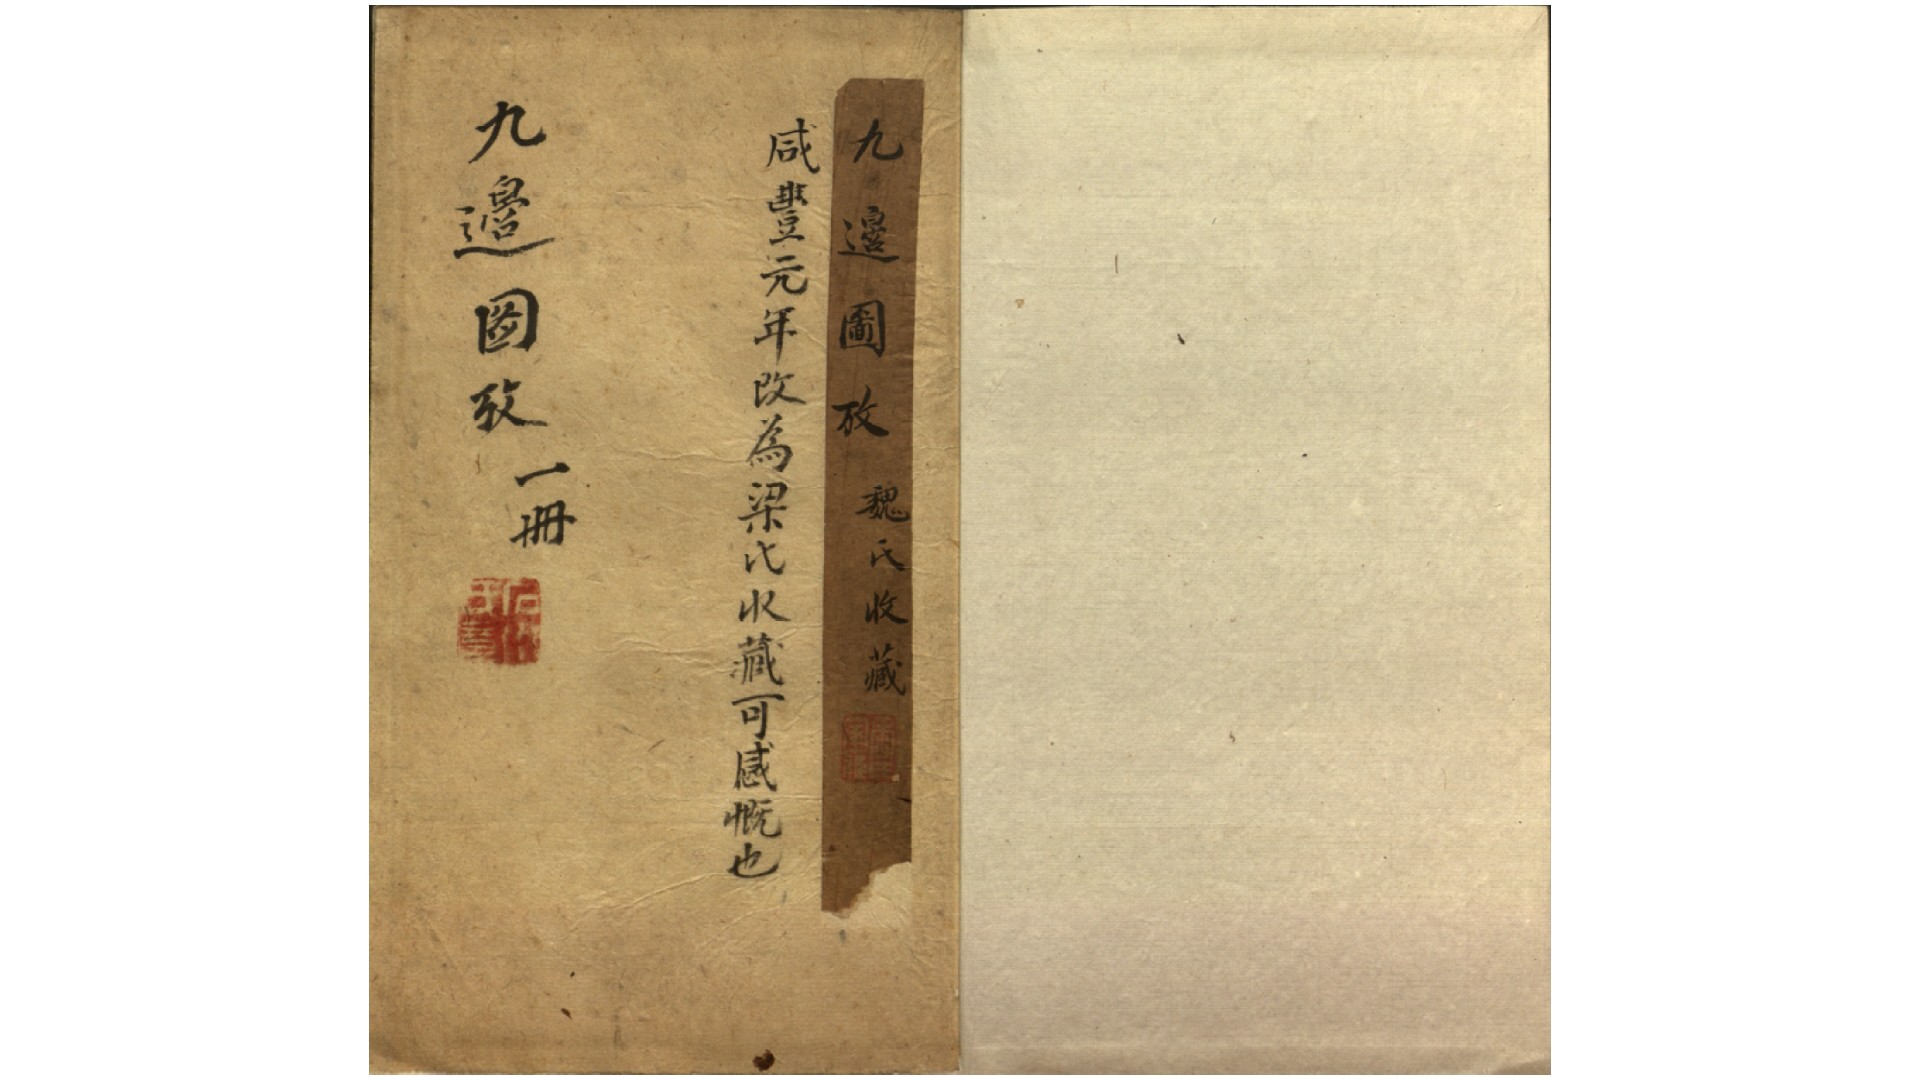 九邊圖攷 魏氏收藏
咸豐元年改為梁氏收藏可感慨也
九邊圖攷 一冊